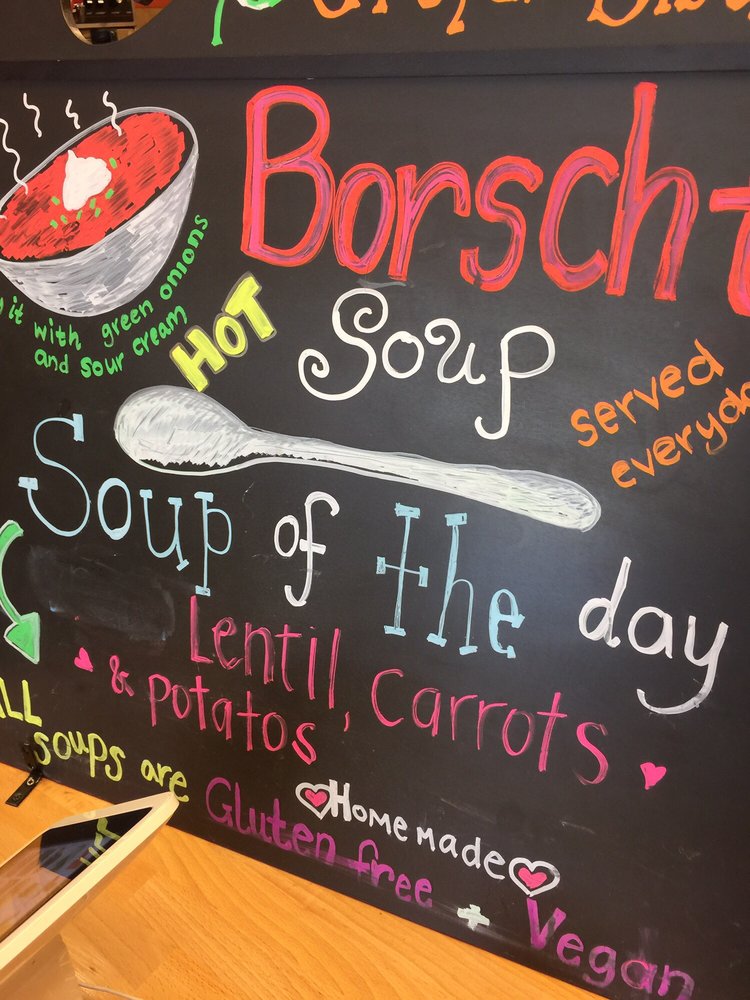 Borscht
HOT
Soup
it with green onions
and sour cream
served
everyday
Soup of the day
Lentil, Carrots
& potatos
ALL
soups are
Home made
Gluten free + Vegan